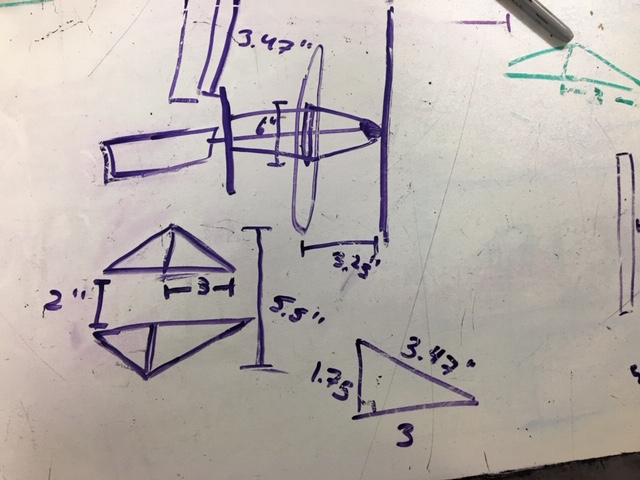 3.47"
6"
3.25"
3
2"
5.5"
3.47"
1.75
3